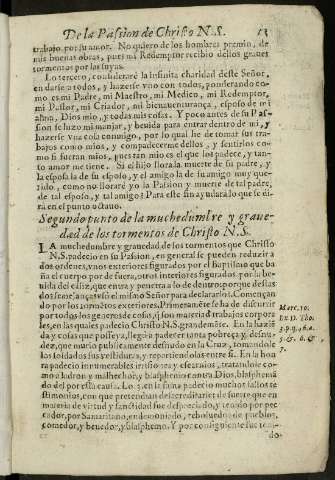 De la Passion de Christo N.S. 13
trabajo por su amor. No quiero de los hombres premio, de
mis buenas obras, pues mi Redemptor recibio dellos graues
tormentos por las suyas.
Lo tercero, considerarè la infinita charidad deste Señor,
en darse a todos, y hazerse vno con todos, ponderando co-
mo es mi Padre, mi Maestro, mi Medico, mi Redemptor,
mi Pastor, mi Criador, mi bienauenturança, esposo de mi
alma, Dios mio, y todas mis cosas. Y poco antes de su Pas-
sion se hizo mi manjar, y beuida para entrar dentro de mi, y
hazerse vna cosa conmigo, por lo qual he de tomar sus tra-
bajos como mios, y compadecerme dellos, y sentirlos co-
mo si fueran mios, pues tan mio es el que los padece, y tan-
to amor me tiene. Si el hijo llora la muerte de su padre, y
la esposa la de su esposo, y el amigo la de su amigo muy que-
rido, como no llorarè yo la Passion y muerte de tal padre,
de tal esposo, y tal amigo? Para este fin ayudarà lo que se di-
rà en el punto octauo.
Segundo punto de la muchedumbre y graue-
dad de los tormentos de Christo N.S.
LA muchedumbre y grauedad de los tormentos que Christo
N.S. padecio en su Passion, en general se pueden reducir a
dos ordenes, vnos exteriores figurados por el Baptismo que ba-
ña el cuerpo por de fuera, otros interiores figurados por la be-
uida del caliz, que entra y penetra a lo de dentro, porque destas
dos
Començan
do por los tormentos exteriores. Primeramẽte se ha de discurrir
por todos los generos de cosas, q̃ son materia d̃ trabajos corpora
les, en las quales padecio Christo N.S. grandemẽte. En la haziẽ
da y cosas que posseya, llegò a padecer tanta pobreza y, desnu-
dez, que murio publicamente desnudo en la Cruz, tomandole
los soldados sus vestiduras, y repartiendolas entre si. En la hon
ra padecio innumerables irrisiones, y escarnios, tratandole co-
mo a ladron y malhechor, y blasphemo contra Dios,
do del por essa causa. Lo 3. en la fama padecio muchos falsos te
stimonios, con que pretendian desacreditarle de suerte que en
materia de virtud y sanctidad fue despreciado, y tenido por pec
cador, por Samaritano, endemoniado, reboluedor de pueblos,
comedor, y beuedor, y blasphemo. Y por consiguiente fue teni-
do-
Marc. 10.
D. Tho.
3.p.q.46.a.
5. & 6. &
7.